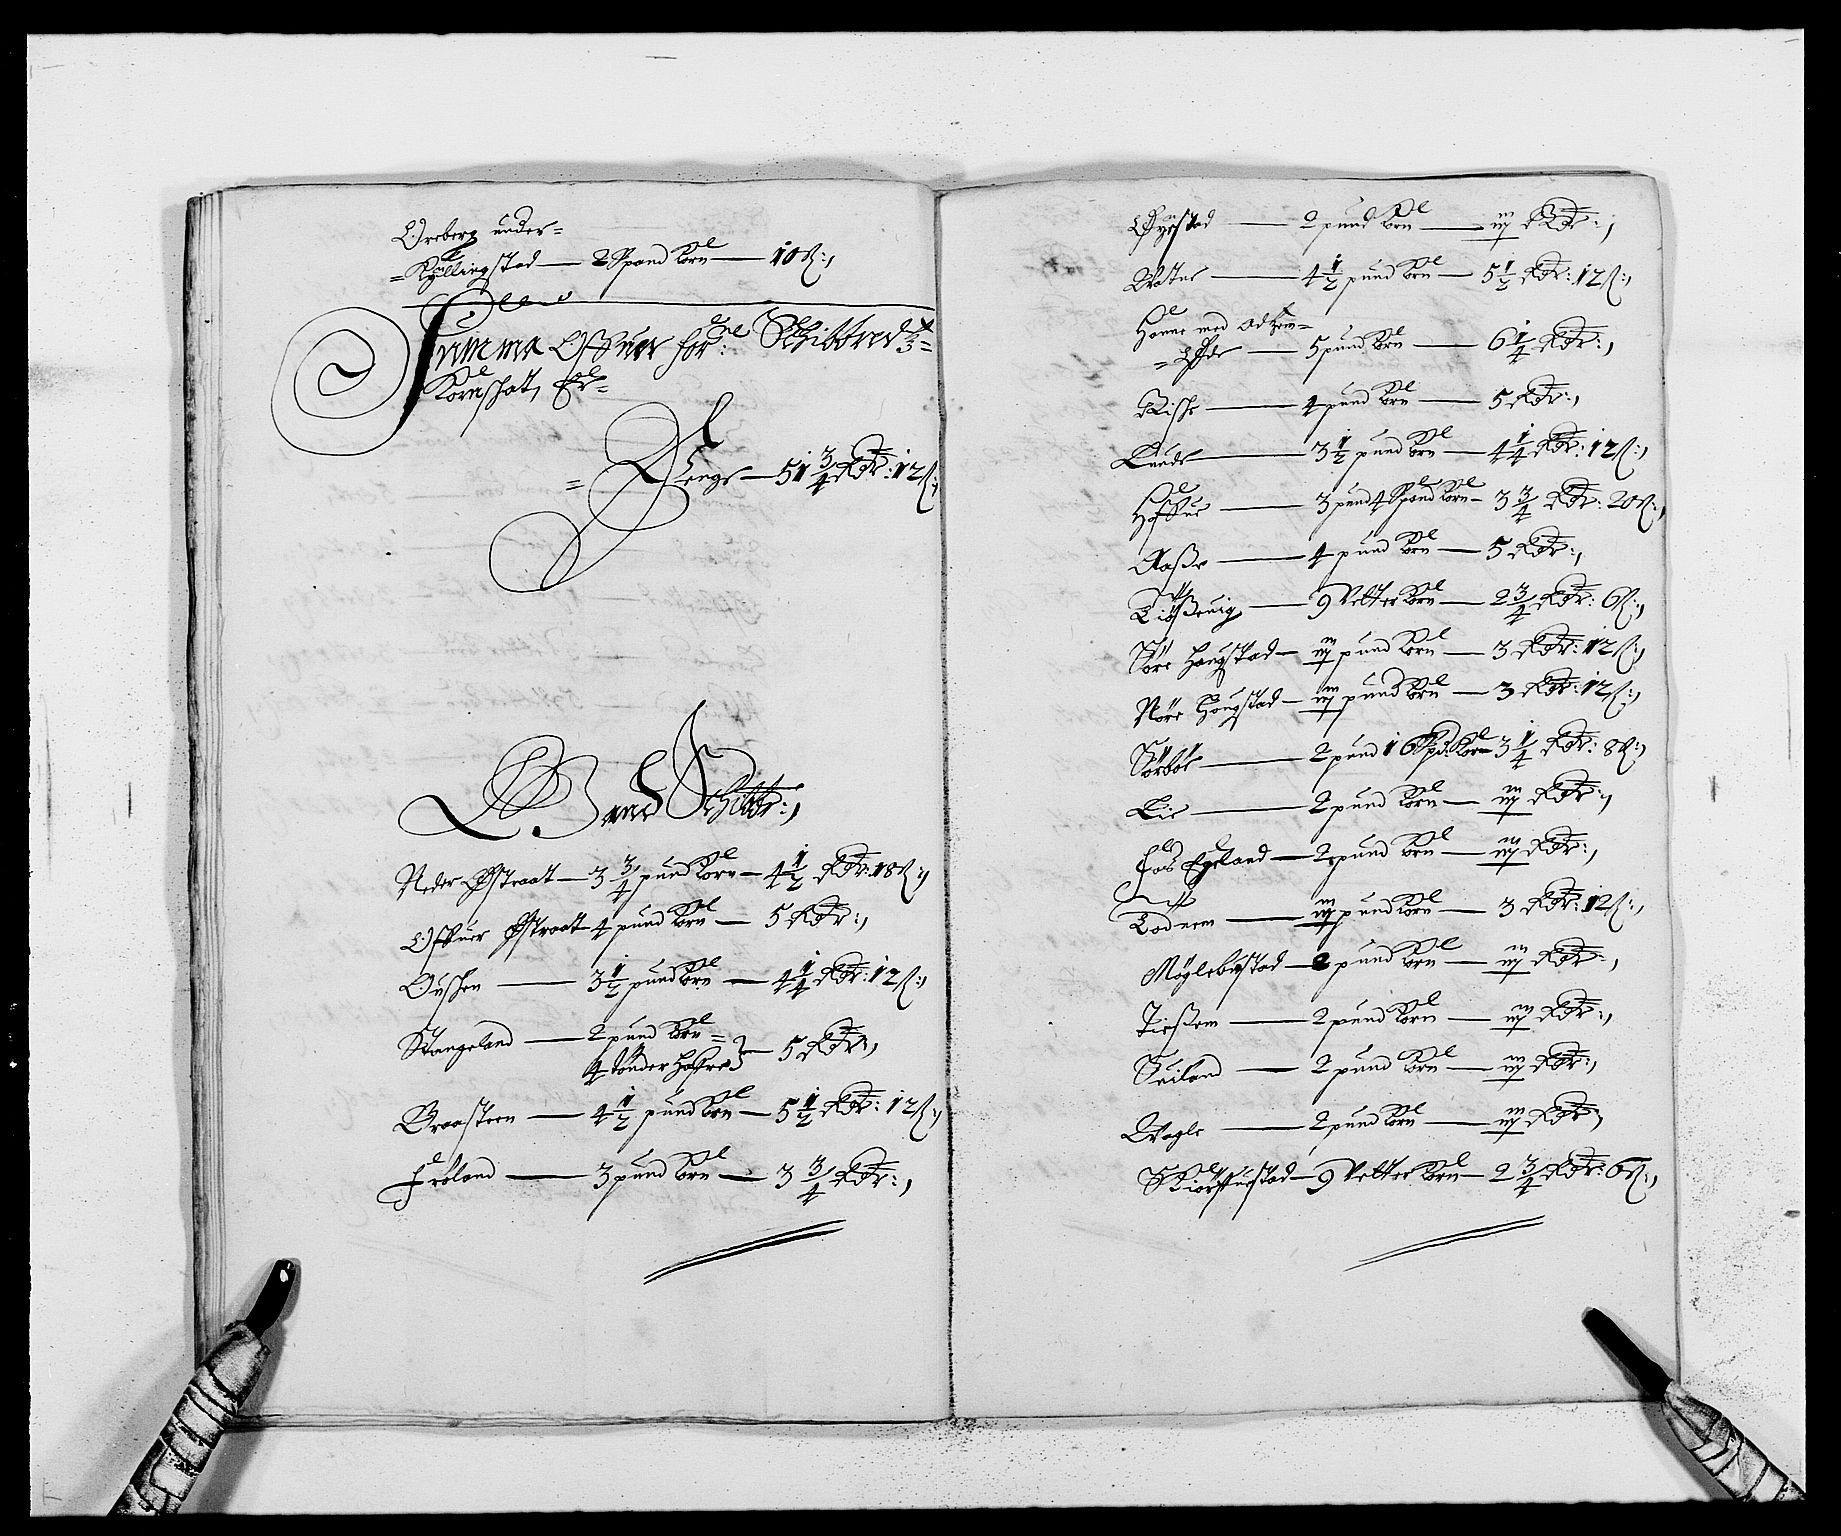 Oreberg under=
=Kyllingstad — 2 Spand Korn — 10 ß:,
Summa Offuer for:ne Schibbred
Kornschat, Er=
= Penge — 51 3/4 Rdr: 12 ß:,
Sand Schibbr:,
Neder Østraat — 3 3/4 pund Korn — 4 1/2 Rdr: 18 ß:,
Offuer Østraat 4 pund Korn — 5 Rdr:,
Ousken — 3 1/2 pund Korn — 4 1/4 Rdr: 12 ß:,
Stangeland — 2 pund Korn =
4 tønder Hafre — 5 Rdr:,
Graasteen — 4 1/2 pund Korn — 5 1/2 Rdr: 12 ß:,
Frøland — 3 pund Korn — 3 3/4 Rdr:,
Øyestad — 2 pund Korn — ij Rdr:,
Watne — 4 1/2 pund Korn — 5 1/2 Rdr: 12 ß:,
Hanne med
5 pund Korn — 6 1/4 Rdr:,
Riske — 4 pund Korn — 5 Rdr:,
Lunde — 3 1/2 pund Korn — 4 1/4 Rdr: 12 ß:,
Hoffue — 3 pund 4 Spand Korn — 3 3/4 Rdr: 20 ß:,
Aaße — 4 pund Korn — 5 Rdr:,
Lioßeuig — 9 Vetter Korn — 2 3/4 Rdr: 6 ß:,
Søre Haugstad — pund Korn — 3 Rdr: 12 ß:,
Nøre Haugstad — pund Korn — 3 Rdr: 12 ß:,
Sørbøe — 2 pund 1 6 Spd: Korn 3 1/4 Rdr: 8 ß:,
Lie — 2 pund Korn — Rdr:,
Fos Egeland — 2 pund Korn — Rdr:,
Lodnem — pund Korn — 3 Rdr: 12 ß:,
Møglebustad — 2 pund Korn — Rdr:,
Tießem — 2 pund Korn — Rdr:,
Seiland — 2 pund Korn — Rdr:,
Wagle — 2 pund Korn — Rdr:,
Skiørffuestad — 9 Vetter Korn — 2 3/4 Rdr: 6 ß:,